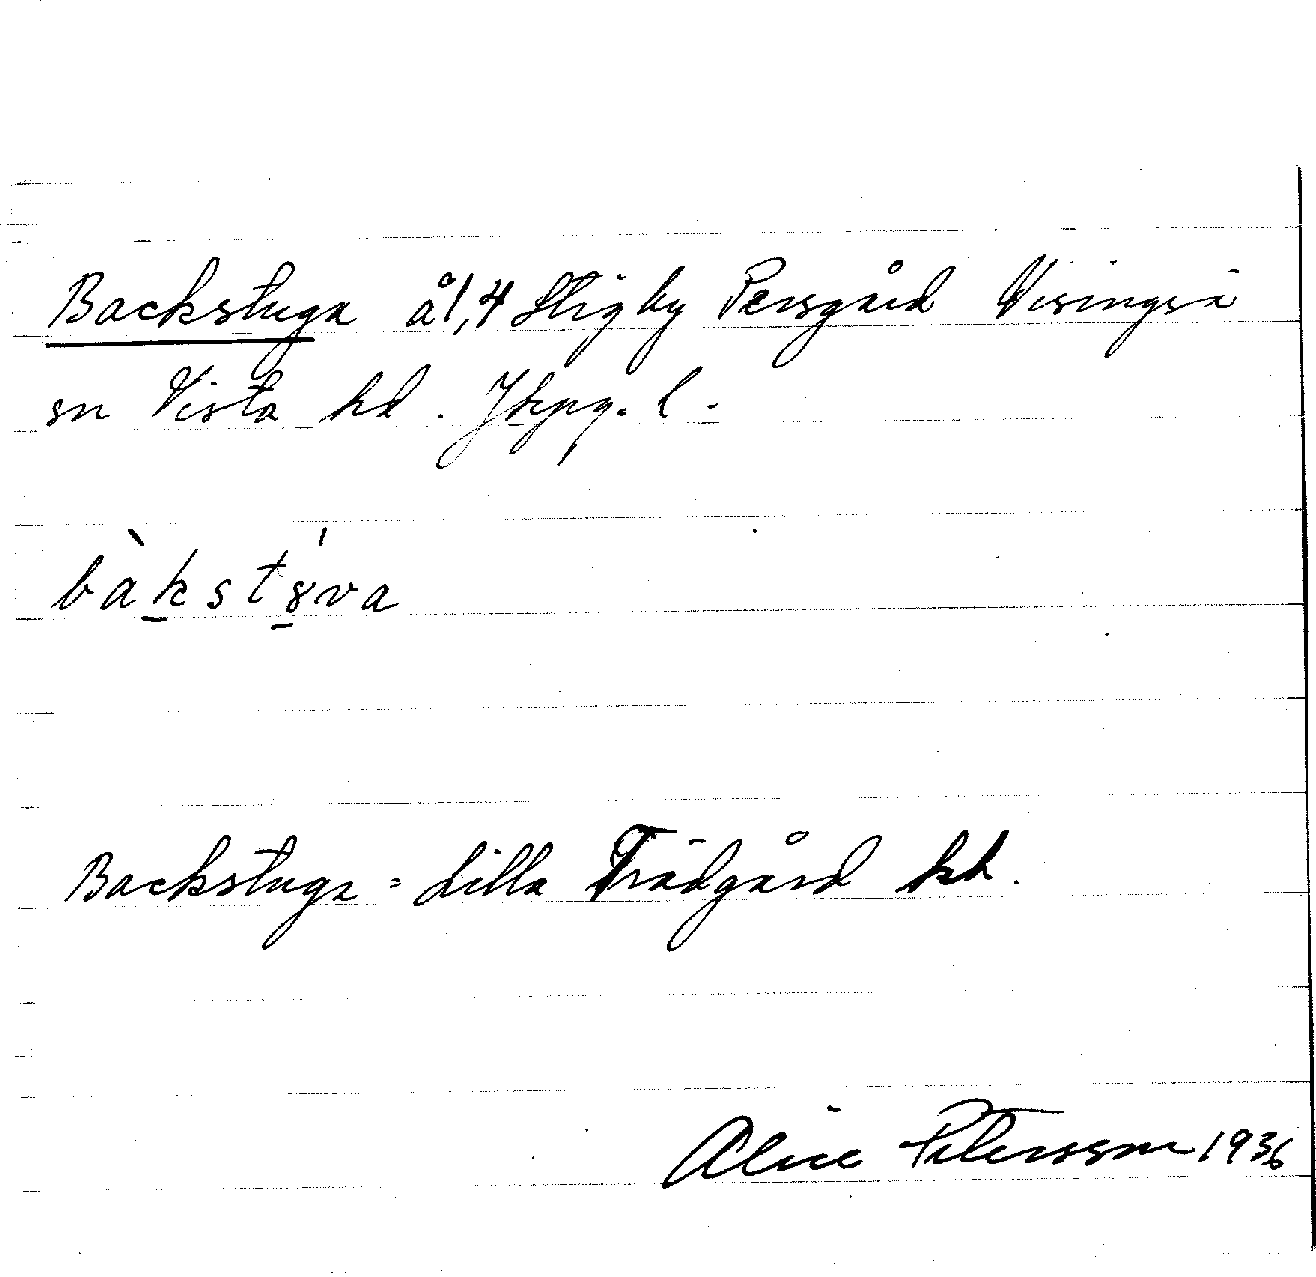 Backstuga å1,4 Stigby Persgård Visingsö
sn Vista hd. Jkpg. l.
bàkstȣ́va
Backstuga = Lilla Trädgård hd.
Alice Petersson 1936